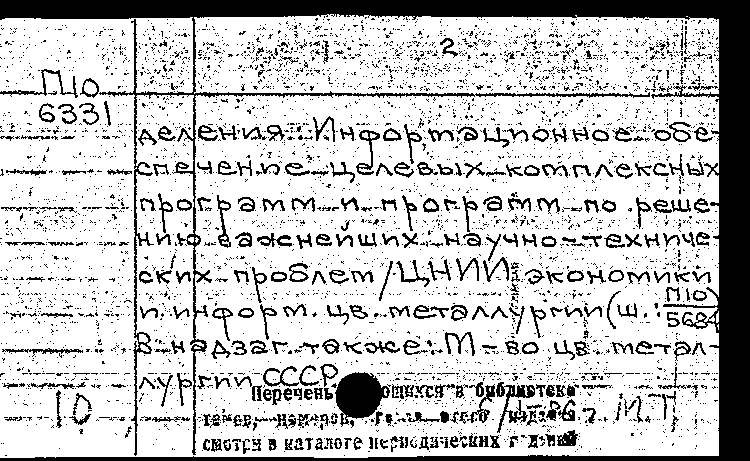 2
П10
6331
деления: Информационное обе-
спечение целевых комплексных
программ и программ по реше-
нию важнейших научно-техниче-
ских проблем /ЦНИИ экономики
и информ. цв. металлургии (ш.: П10
5684)
В надзаг. также: М-во цв. метал-
лургии СССР
Перечень ющихся в библиотеке
томов, номеров,
10
М.Т.
смотри в каталоге периодических